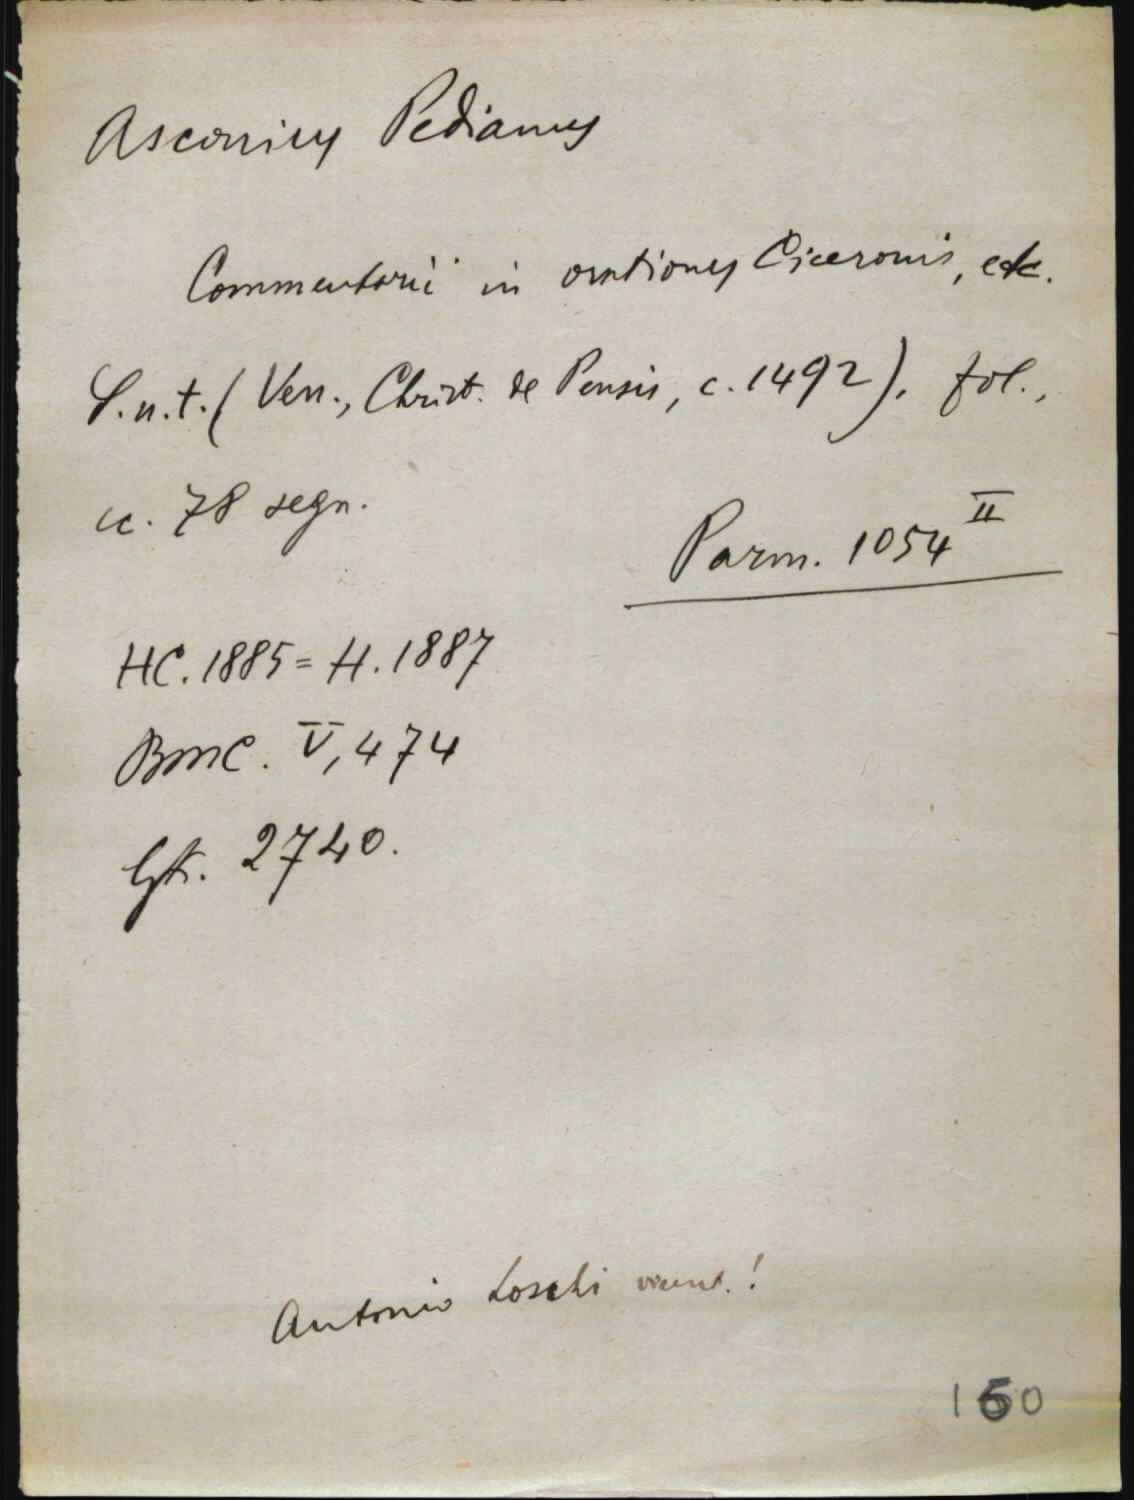 Asconius Pedianus
Commentarii in orationes Ciceronis, etc.
S.n.t. (Ven., Christ. de Pensis, c. 1492). fol.,
cc. 78 segn.
Parm. 1054 II
HC. 1885 = H. 1887
BMC. V, 474
GK. 2740.
Antonio Loschi vicent.!
160